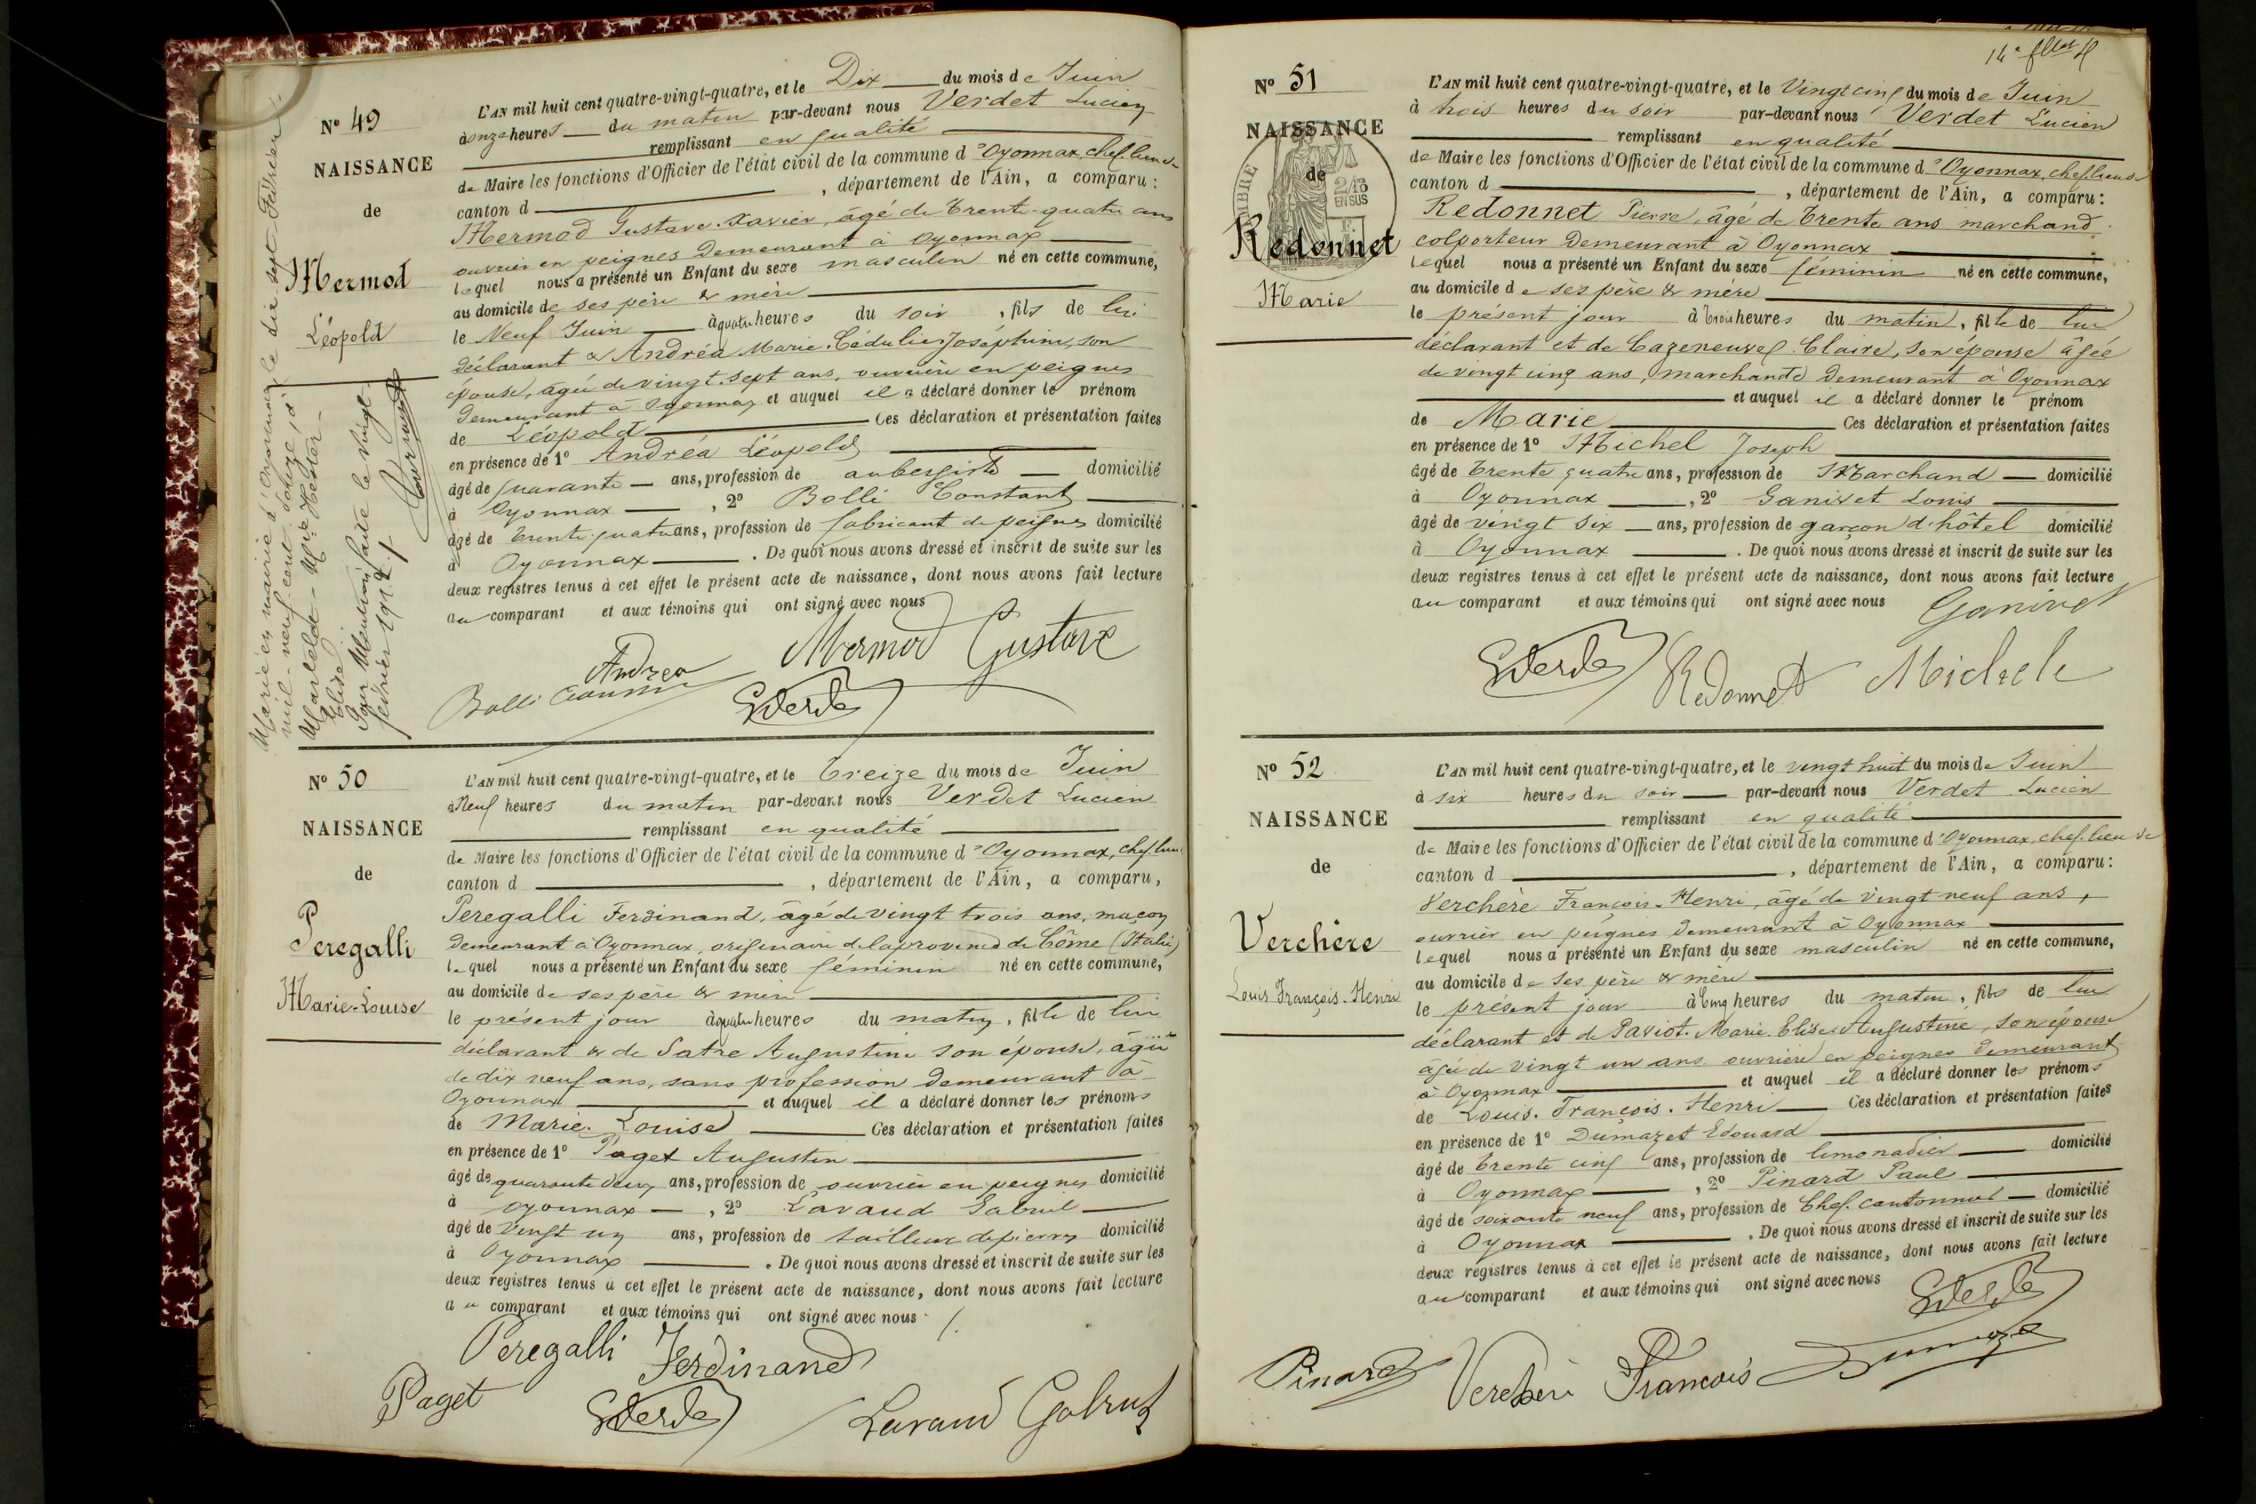 14e fllet
Nº 49
NAISSANCE
de
Mermod
Léopold
Marié en mairie d'Oyonnax le dix sept Février
mil-neuf-cent-douze, à
Marie Hestor
Elise
Par Mention faite le vingt
février 1912
L'AN mil huit cent quatre-vingt-quatre, et le Dix du mois de Juin
à onze heures du matin par-devant nous Verdet Lucien
remplissant en qualité
de Maire les fonctions d'Officier de l'état civil de la commune d'Oyonnax, chef lieu de
canton d , département de l'Ain, a comparu :
Mermod Gustave Xavier, âgé de trente-quatre ans
ouvrier en peignes Demeurant à Oyonnax
lequel nous a présenté un Enfant du sexe masculin né en cette commune,
au domicile de ses père & mère
le Neuf Juin à quatre heures du soir , fils de lui
déclarant & Andréa Marie Cédulie Joséphine, son
épouse, âgée de vingt-sept ans, ouvrière en peignes
Demeurant à Oyonnax et auquel il a déclaré donner le prénom
de Léopold Ces déclaration et présentation faites
en présence de 1º Andréa Léopold
âgé de quarante ans, profession de aubergiste domicilié
à Oyonnax , 2º Bolli Constant
âgé de trente quatre ans, profession de fabricant de peignes domicilié
à Oyonnax . De quoi nous avons dressé et inscrit de suite sur les
deux registres tenus à cet effet le présent acte de naissance, dont nous avons fait lecture
au comparant et aux témoins qui ont signé avec nous
Mermod Gustave
Andréa
Bolli
Verdet
Nº 50
NAISSANCE
de
Peregalli
Marie-Louise
L'AN mil huit cent quatre-vingt-quatre, et le treize du mois de Juin
à Neuf heures du matin par-devant nous Verdet Lucien
remplissant en qualité
de Maire les fonctions d'Officier de l'état civil de la commune d'Oyonnax, chef lieu
canton d , département de l'Ain, a comparu,
Peregalli Ferdinand, âgé de vingt trois ans, maçon
Demeurant à Oyonnax, originaire de la province de Côme (Italie)
lequel nous a présenté un Enfant du sexe féminin né en cette commune,
au domicile de ses père & mère
le présent jour à quatre heures du matin, fille de lui
déclarant & de Satre Augustine son épouse, âgée
de dix neuf ans, sans profession Demeurant à
Oyonnax et auquel il a déclaré donner les prénoms
de Marie-Louise Ces déclaration et présentation faites
en présence de 1º Paget Augustin
âgé de quarante deux ans, profession de ouvrier en peignes domicilié
à Oyonnax , 2º Lavaud Gabriel
âgé de vingt un ans, profession de tailleur de pierres domicilié
à Oyonnax . De quoi nous avons dressé et inscrit de suite sur les
deux registres tenus à cet effet le présent acte de naissance, dont nous avons fait lecture
au comparant et aux témoins qui ont signé avec nous
Peregalli Ferdinand
Paget
Verdet
Lavaud Gabriel
Nº 51
NAISSANCE
de
Redonnet
Marie
TIMBRE
2/10
EN SUS
L'AN mil huit cent quatre-vingt-quatre, et le Vingt cinq du mois de Juin
à trois heures du soir par-devant nous Verdet Lucien
remplissant en qualité
de Maire les fonctions d'Officier de l'état civil de la commune d'Oyonnax, chef lieu de
canton d , département de l'Ain, a comparu :
Redonnet Pierre, âgé de trente ans marchand
colporteur Demeurant à Oyonnax
lequel nous a présenté un Enfant du sexe féminin né en cette commune,
au domicile de ses père & mère
le présent jour à trois heures du matin, fille de lui
déclarant et de Cazeneuve Claire, son épouse âgée
de vingt cinq ans, marchande Demeurant à Oyonnax
et auquel il a déclaré donner le prénom
de Marie Ces déclaration et présentation faites
en présence de 1º Michel Joseph
âgé de trente quatre ans, profession de Marchand domicilié
à Oyonnax , 2º Ganivet Louis
âgé de vingt six ans, profession de garçon d'hôtel domicilié
à Oyonnax . De quoi nous avons dressé et inscrit de suite sur les
deux registres tenus à cet effet le présent acte de naissance, dont nous avons fait lecture
au comparant et aux témoins qui ont signé avec nous
Ganivet
Verdet Redonnet Michele
Nº 52
NAISSANCE
de
Verchère
Louis François-Henri
L'AN mil huit cent quatre-vingt-quatre, et le vingt huit du mois de Juin
à six heures du soir par-devant nous Verdet Lucien
remplissant en qualité
de Maire les fonctions d'Officier de l'état civil de la commune d'Oyonnax, chef lieu de
canton d , département de l'Ain, a comparu :
Verchère François-Henri, âgé de vingt neuf ans,
ouvrier en peignes Demeurant à Oyonnax
lequel nous a présenté un Enfant du sexe masculin né en cette commune,
au domicile de ses père & mère
le présent jour à Cinq heures du matin, fils de lui
déclarant et de Paviot Marie Elise Augustine, son épouse
âgée de vingt un ans ouvrière en peignes Demeurant
à Oyonnax et auquel il a déclaré donner les prénoms
de Louis François Henri Ces déclaration et présentation faites
en présence de 1º Dumazet Edouard
âgé de trente cinq ans, profession de limonadier domicilié
à Oyonnax , 2º Pinard Paul
âgé de soixante neuf ans, profession de Chef cantonnier domicilié
à Oyonnax . De quoi nous avons dressé et inscrit de suite sur les
deux registres tenus à cet effet le présent acte de naissance, dont nous avons fait lecture
au comparant et aux témoins qui ont signé avec nous
Verdet
Pinard Verchère François Dumazet